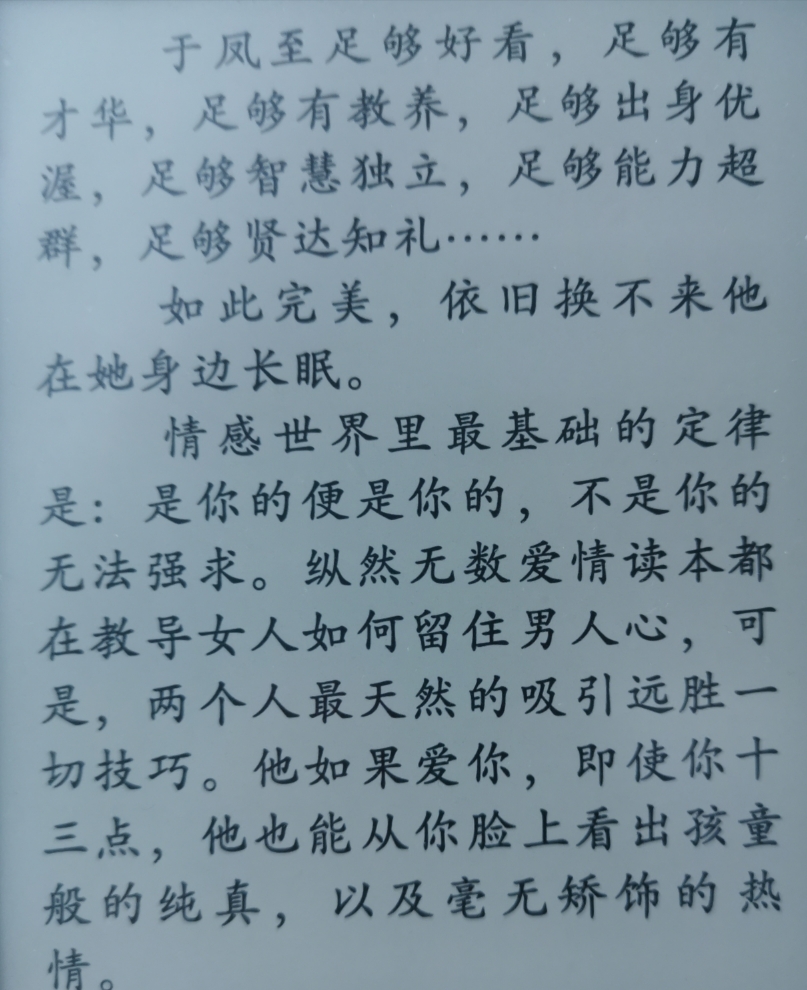 于凤至足够好看，足够有
才华，足够有教养，足够出身优
渥，足够智慧独立，足够能力超
群，足够贤达知礼……
如此完美，依旧换不来他
在她身边长眠。
情感世界里最基础的定律
是：是你的便是你的，不是你的
无法强求。纵然无数爱情读本都
在教导女人如何留住男人心，可
是，两个人最天然的吸引远胜一
切技巧。他如果爱你，即使你十
三点，他也能从你脸上看出孩童
般的纯真，以及毫无矫饰的热
情。